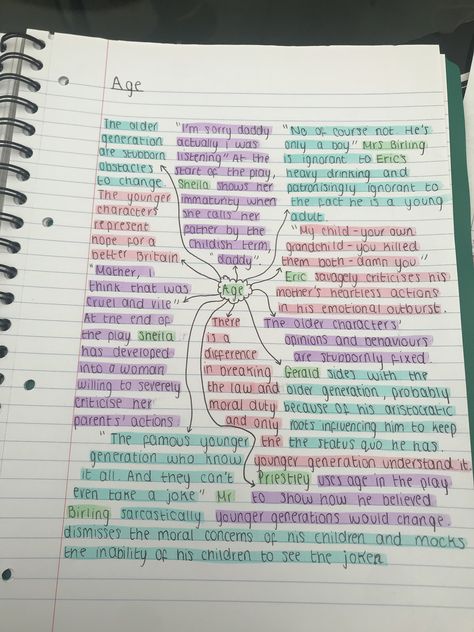 Age
The older
generation
are stubborn
obstacles
to change.
The younger
characters
represent
hope for a
better Britain.
"Mather, I
think that was
cruel and vile"
At the end of
the play Sheila
has developed
into a woman
willing to severely
criticise her
parents' actions
"I'm sorry daddy
actually I was
listening" At the
start of the play,
Sheila shows her
immaturity when
she calls her
father by the
childish term,
"daddy".
"No of course not He's
only a boy" Mrs Birling
is ignorant to Eric's
heavy drinking and
patronisingly ignorant to
the fact he is a young
adult.
"My child - your own
grandchild - you killed
them both - damn you"
Eric savagely criticises his
mother's heartless actions
in his emotional outburst.
Age
The older characters'
opinions and behaviours
are stubbornly fixed.
Gerald sides with the
older generation, probably
because of his aristocratic
roots influencing him to keep
the status quo he has.
There
is a
difference
in breaking
the law and
moral duty
and only
the
younger generation understand it.
Priestley uses age in the play
to show how he believed
younger generations would change.
"The famous younger
generation who know
it all. And they can't
even take a joke" Mr
Birling sarcastically
dismisses the moral concerns of his children and mocks
the inability of his children to see the joke.